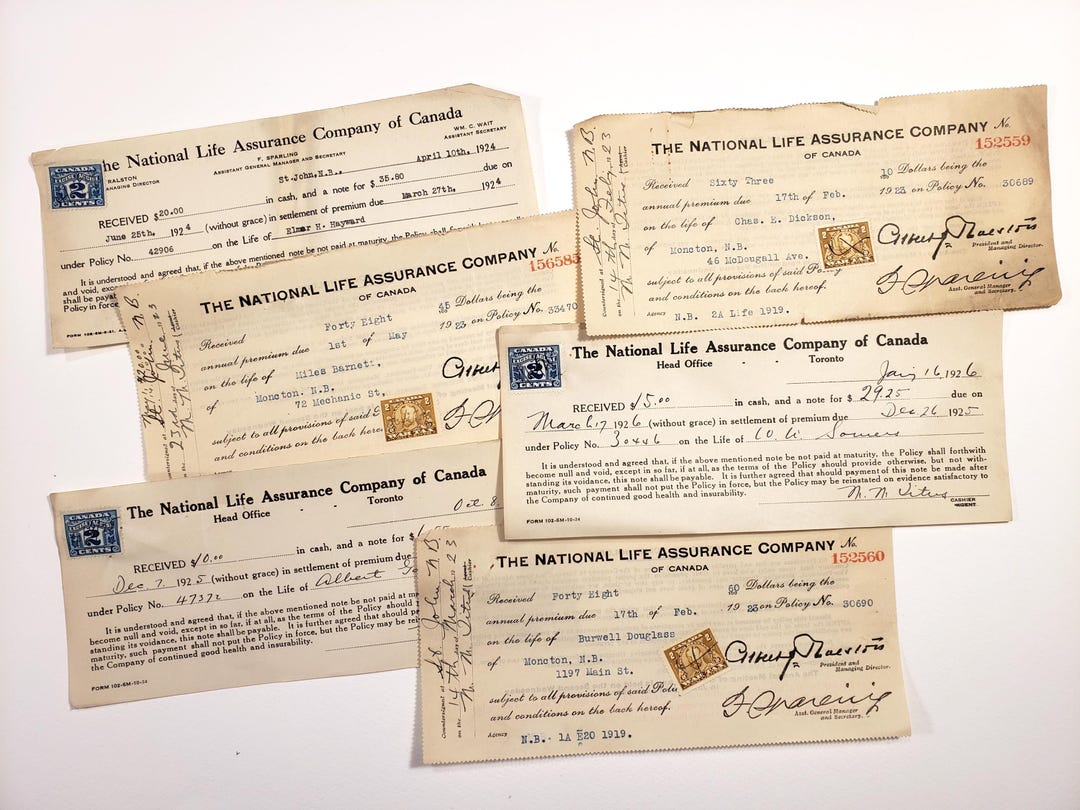 The National Life Assurance Company of Canada
RALSTON
MANAGING DIRECTOR
F. SPARLING
ASSISTANT GENERAL MANAGER AND SECRETARY
WM. C. WAIT
ASSISTANT SECRETARY
CANADA
EXCISE TAX
2
CENTS
St.John,N.B., April 10th, 1924
RECEIVED $20.00 in cash, and a note for $35.80 due on
June 25th, 1924 (without grace) in settlement of premium due March 27th, 1924
under Policy No. 42906 on the Life of Elmer H. Hayward
It is understood and agreed that, if the above mentioned note be not paid at maturity, the Policy shall
and void, except
shall be payable
Policy in force,
THE NATIONAL LIFE ASSURANCE COMPANY No.
OF CANADA
152559
Received Sixty Three 10 Dollars being the
annual premium due 17th of Feb. 1923 on Policy No. 30689
on the life of Chas. E. Dickson,
of Moncton, N.B.
46 McDougall Ave.
subject to all provisions of said Policy
and conditions on the back hereof.
President and
Managing Director.
Asst. General Manager
and Secretary.
AGENCY N.B. 2A Life 1919.
Countersigned at St. John N.B.
on the 14th 23
Cashier
THE NATIONAL LIFE ASSURANCE COMPANY No.
OF CANADA
156585
Received Forty Eight 45 Dollars being the
annual premium due 1st of May 1923 on Policy No. 33470
on the life of Miles Barnett,
of Moncton. N.B.
72 Mechanic St,
subject to all provisions of said
and conditions on the back hereof.
Countersigned at St. John N.B.
on the 23rd day June 23
Cashier
The National Life Assurance Company of Canada
Head Office Toronto
CANADA
EXCISE TAX
2
CENTS
Jan 16 1926
RECEIVED $15.00 in cash, and a note for $29.25 due on
March 17 1926 (without grace) in settlement of premium due Dec 26 1925
under Policy No. 30446 on the Life of
It is understood and agreed that, if the above mentioned note be not paid at maturity, the Policy shall forthwith
become null and void, except in so far, if at all, as the terms of the Policy should provide otherwise, but not with-
standing its voidance, this note shall be payable. It is further agreed that should payment of this note be made after
maturity, such payment shall not put the Policy in force, but the Policy may be reinstated on evidence satisfactory to
the Company of continued good health and insurability.
CASHIER
AGENT.
FORM 102-5M-10-24
The National Life Assurance Company of Canada
Head Office Toronto
CANADA
EXCISE TAX
2
CENTS
Oct. 8
RECEIVED $10.00 in cash, and a note for $
Dec. 7. 1925 (without grace) in settlement of premium due
under Policy No. 47372 on the Life of Albert
It is understood and agreed that, if the above mentioned note be not paid at
become null and void, except in so far, if at all, as the terms of the Policy should
standing its voidance, this note shall be payable. It is further agreed that should
maturity, such payment shall not put the Policy in force, but the Policy may be
the Company of continued good health and insurability.
FORM 102-5M-10-24
THE NATIONAL LIFE ASSURANCE COMPANY No.
OF CANADA
152560
Received Forty Eight 60 Dollars being the
annual premium due 17th of Feb. 1923 on Policy No. 30690
on the life of Burwell Douglass
of Moncton, N.B.
1197 Main St.
subject to all provisions of said Policy
and conditions on the back hereof.
President and
Managing Director.
Asst. General Manager
and Secretary.
Agency N.B. 1A E20 1919.
Countersigned at St John N.B.
on the 14th March 23
Cashier